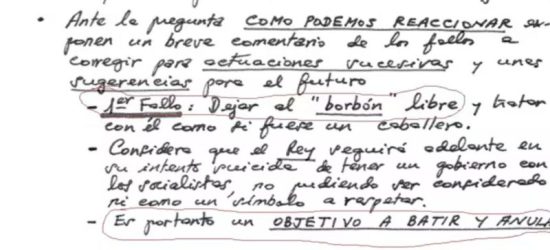 • Ante la pregunta COMO PODEMOS REACCIONAR ex-
ponen un breve comentario de los fallos a
corregir para actuaciones sucesivas y unas
sugerencias para el futuro
- 1er Fallo: Dejar al "borbón" libre y tratar
con él como si fuese un caballero.
- Considera que el Rey seguirá adelante en
su intento suicida de tener un gobierno con
los socialistas, no pudiendo ser considerado
ni como un símbolo a respetar.
- Es portanto un OBJETIVO A BATIR Y ANULA